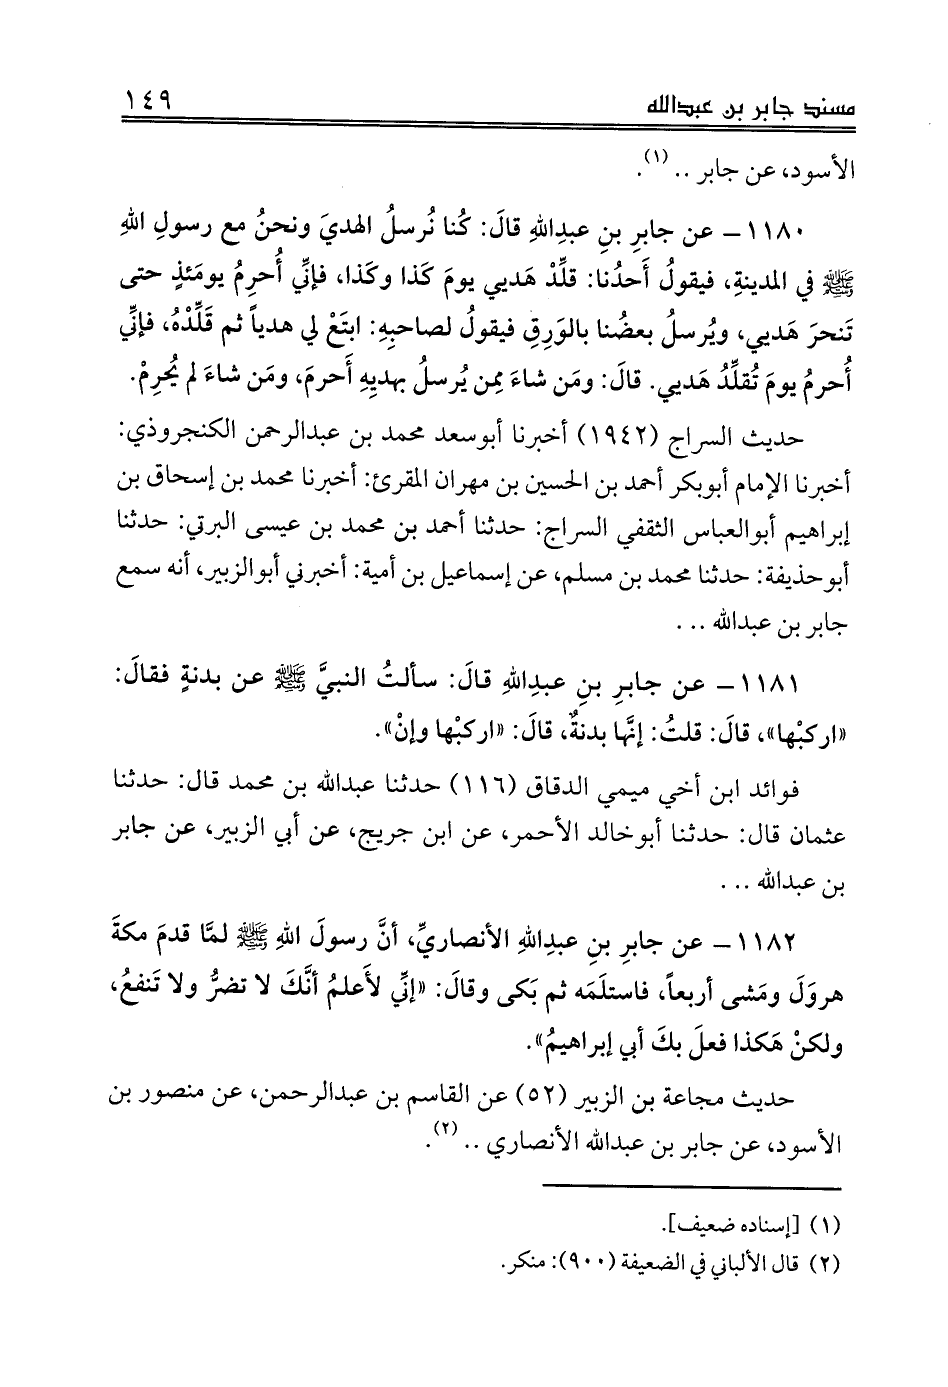 مسند جابر بن عبدالله ١٤٩
الأسود، عن جابر .. (١).
١١٨٠ – عن جابرِ بنِ عبدِاللهِ قالَ: كُنا نُرسلُ الهديَ ونحنُ مع رسولِ اللهِ
ﷺ في المدينةِ، فيقولُ أَحدُنا: قلِّدْ هَديي يومَ كَذا وكَذا، فإنِّي أُحرمُ يومَئذٍ حتى
تَنحرَ هَديي، ويُرسلُ بعضُنا بالوَرِقِ فيقولُ لصاحبِهِ: ابتَعْ لي هدياً ثم قَلِّدْهُ، فإنِّي
أُحرمُ يومَ تُقلِّدُ هَديي. قالَ: ومَن شاءَ مِمن يُرسلُ بهديِهِ أَحرمَ، ومَن شاءَ لم يُحرِمْ.
حديث السراج (١٩٤٢) أخبرنا أبوسعد محمد بن عبدالرحمن الكنجروذي:
أخبرنا الإمام أبوبكر أحمد بن الحسين بن مهران المقرئ: أخبرنا محمد بن إسحاق بن
إبراهيم أبوالعباس الثقفي السراج: حدثنا أحمد بن محمد بن عيسى البرتي: حدثنا
أبوحذيفة: حدثنا محمد بن مسلم، عن إسماعيل بن أمية: أخبرني أبوالزبير، أنه سمع
جابر بن عبدالله ...
١١٨١ – عن جابرِ بنِ عبدِاللهِ قالَ: سألتُ النبيَّ ﷺ عن بدنةٍ فقالَ:
«اركبْها»، قالَ: قلتُ: إنَّها بدنةٌ، قالَ: «اركبْها وإنْ».
فوائد ابن أخي ميمي الدقاق (١١٦) حدثنا عبدالله بن محمد قال: حدثنا
عثمان قال: حدثنا أبوخالد الأحمر، عن ابن جريج، عن أبي الزبير، عن جابر
بن عبدالله ...
١١٨٢ – عن جابرِ بنِ عبدِاللهِ الأنصاريِّ، أنَّ رسولَ اللهِ ﷺ لمَّا قدمَ مكةَ
هروَلَ ومَشى أربعاً، فاستلَمَه ثم بَكى وقالَ: «إنِّي لأَعلمُ أنَّكَ لا تضرُّ ولا تَنفعُ،
ولكنْ هَكذا فعلَ بكَ أبي إبراهيمُ».
حديث مجاعة بن الزبير (٥٢) عن القاسم بن عبدالرحمن، عن منصور بن
الأسود، عن جابر بن عبدالله الأنصاري .. (٢).
(١) [إسناده ضعيف].
(٢) قال الألباني في الضعيفة (٩٠٠): منكر.